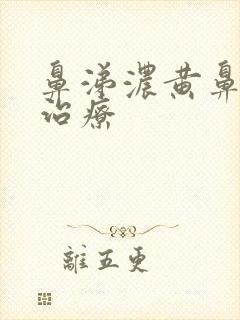 鼻涕濃黄鼻
治療
離五更